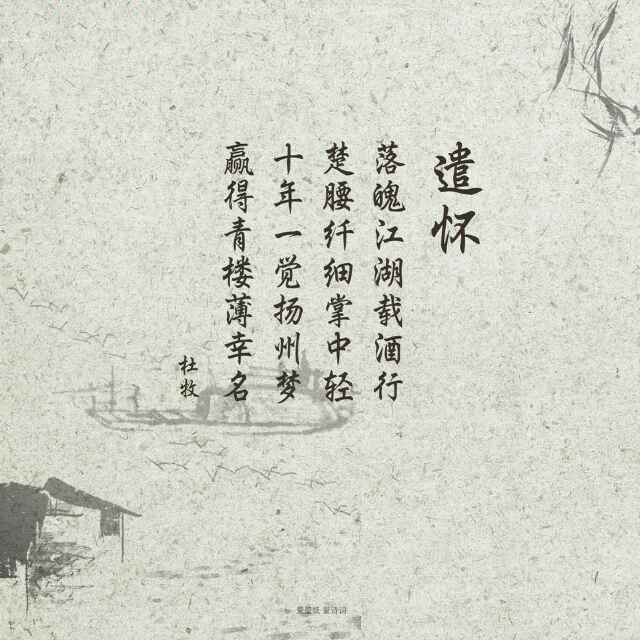 遣怀
落魄江湖载酒行
楚腰纤细掌中轻
十年一觉扬州梦
赢得青楼薄幸名
杜牧